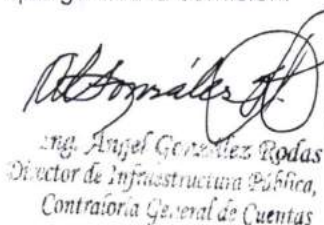 González
Ing. Angel González Rodas
Director de Infraestructura Pública,
Contraloría General de Cuentas